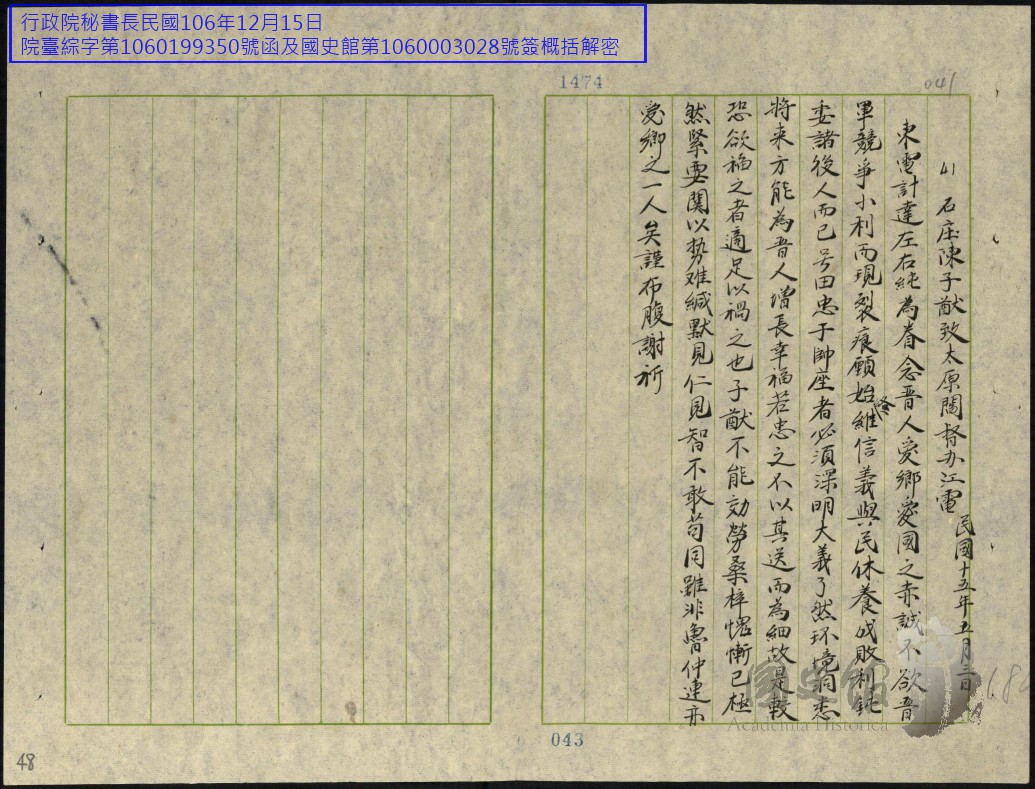 行政院秘書長民國106年12月15日
院臺綜字第1060199350號函及國史館第1060003028號簽概括解密
1474
041
41 石庄陳子猷致太原閻督办江電 民國十五年五月三日
東電計達左右純為眷念晋人愛鄉愛國之赤誠不欲晋
軍競爭小利而現裂痕願始終維信義與民休養成敗利鈍
委諸後人而已号田忠于帥座者必須深明大義了然环境洞悉
將来方能為晋人增長幸福若忠之不以其送而為細故是較
恐欲福之者適足以禍之也子猷不能効勞桑梓愧慚已極
然緊要関以势难緘默見仁見智不敢苟同雖非魯仲連亦
愛鄉之一人矣謹布腹謝祈
國史館
Academia Historica
043
48